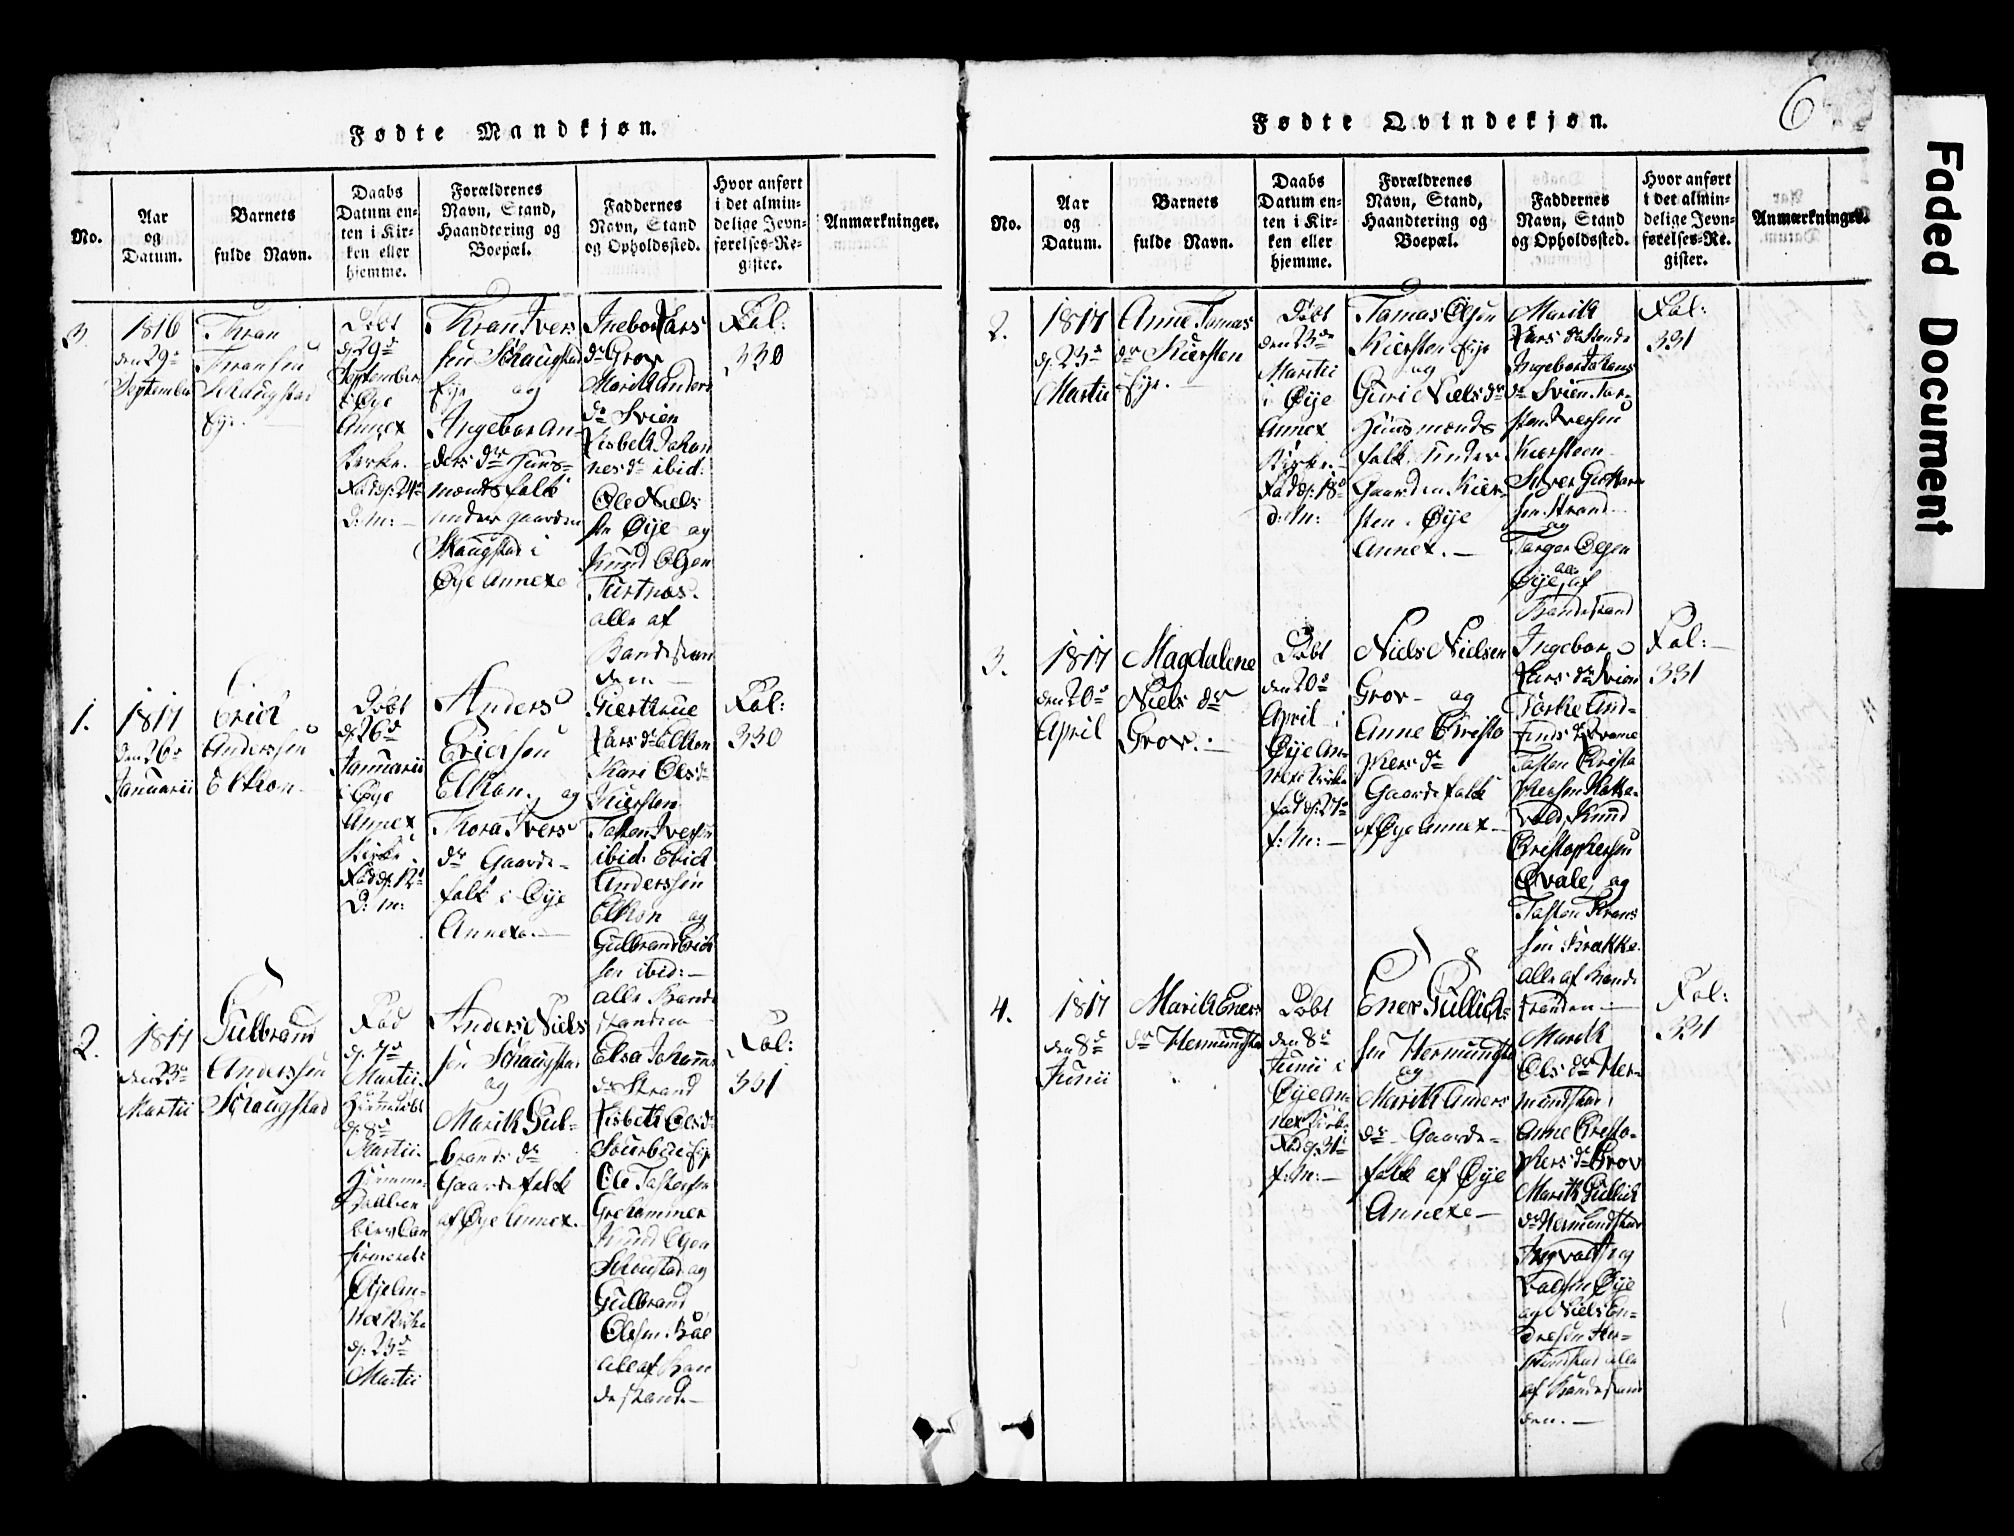 Fødte Mandkjøn.
No.
Aar
og
Datum.
Barnets
fulde Navn.
Daabs
Datum en-
ten i Kir-
ken eller
hjemme.
Forældrenes
Navn, Stand,
Haandtering og
Boepæl.
Faddernes
Navn, Stand
og Opholdssted.
Hvor anført
i det almin-
delige Jevn-
førelses-Re-
gister.
Anmærkninger.
3.
1816
den 29de
September
Thran
Thransen
Schaugstad
Eje.
Døbt
d: 29de
September
i Øye
Annex
Kirke.
Thran Ivers
sen Schaugstad
Eje og
Ingebor An-
ders dr Huus-
mands folk
under gaarden
Skaugstad i
Øye Annexe
Ingebor Lars
dr Grov
Marith Anders
dr Svien
Lisbeth Johan
nes dr ibid:
Ole Niels
sen Øye og
Knud Olsen
Turtnæs.
alle af
Bondestan
den
Fol:
330
1.
1817
den 26de
Januarii
Erich
Anderssen
Elthon
Døbt
d: 26de
Januarii
i Øye
Annex
Kirke
D: M:
Anders
Erichsen
Elthon og
Thora Ivers
dr Gaard-
folk i Øye
Annexe.
Giertrue
Lars dr Elthon
Kari Ols dr
Kiersten
Tosten Iversen
ibid: Erich
Anderssen
Elthon og
Gulbrand Erich
sen ibid:
alle Bonde
standen
Fol:
330
2.
1817
den 23de
Martii
Gulbrand
Anderssen
Schaugstad
Fød
d: 7de
Martii.
d: 8de
Martii.
Øye An-
nex Kirke
d: 23de
Martii
Anders Niels
sen Schaugstad
og
Marith Gul-
brands dr
Gaardefolk
af Øye Annex.
Elsa Johannes
dr Strand
Lisbeth Ols dr
Ole Tostensen
Knud Olsen
og
Gulbrand
Olesen
alle af Bon
destand.
Fol:
331
Fødte Qvindekjøn.
6
No.
Aar
og
Datum.
Barnets
fulde Navn.
Daabs
Datum en-
ten i Kir-
ken eller
hjemme.
Forældrenes
Navn, Stand,
Haandtering og
Boepæl.
Faddernes
Navn, Stand
og Opholdssted.
Hvor anført
i det almin-
delige Jevn-
førelses-Re-
gister.
Anmærkninger.
2.
1817
d: 23de
Martii
Anne Tomas
dr Kiersten
Eje.
Døbt
den 23de
Martii
i Øye
Annex
Kirke.
d: M:
Tomas Olsen
Kiersten Eje
og
Guri Niels dr
Huusmands
folk under
Gaarden Kier-
sten. Øye
Annex.
Marith
Lars dr
Ingebor Johans
dr Svien. Tor-
sten Iversen
Kiersteen
sen Strand
og
Øye, alle af
Bondestand
Fol:
331
3.
1817
den 20de
April
Magdalene
Niels dr
Grov.
Døbt
den 20de
April i
Øye An-
nexe Kirke
f: M:
Niels Nielsen
Grov og
Anne Christo
phers dr
Gaardefolk
af Øye Annex
Ingebor
Lars dr Svien
Tosten Christo
phersen
Knud
Christophersen
Qvale, og
Tosten Thrans
sen Brække
alle af Bonde
standen
Fol:
331
4.
1817
den 8de
Junii
Marith Eners
dr Hermundstad
Døbt
den 8de
Junii i
Øye An-
nex Kirke
f: M:
Ener Gullich-
sen Hermundstad
og
Marith Anders
dr Gaarde-
folk af Øye
Annexe
Marith
Ols dr Her-
mundstad
Anne Christo-
phers dr Grov
Marith Gullich
dr Hermundstad
Øye
og Niels En-
dresen Her-
mundstad alle
af Bondestan
den.
Fol:
331
Faded Document